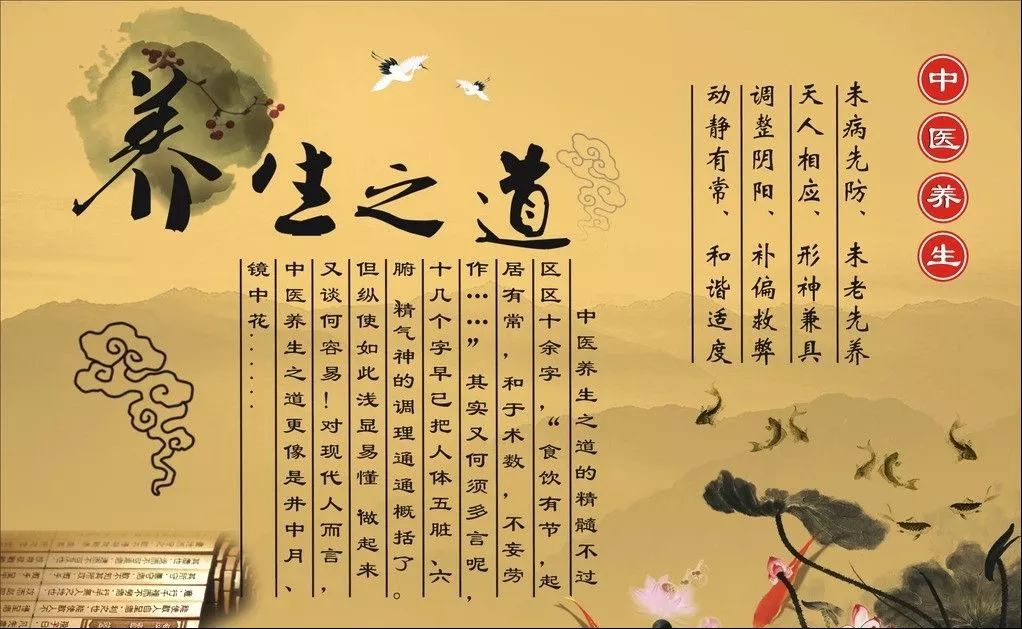 养生之道
中医养生
未病先防、未老先养
天人相应、形神兼具
调整阴阳、补偏救弊
动静有常、和谐适度
中医养生之道的精髓不过
区区十余字，“食饮有节，起
居有常，和于术数，不妄劳
作……”其实又何须多言呢，
十几个字早已把人体五脏、六
腑 精气神的调理通通概括了。
但纵使如此浅显易懂 做起来
又谈何容易！对现代人而言，
中医养生之道更像是井中月、
镜中花……